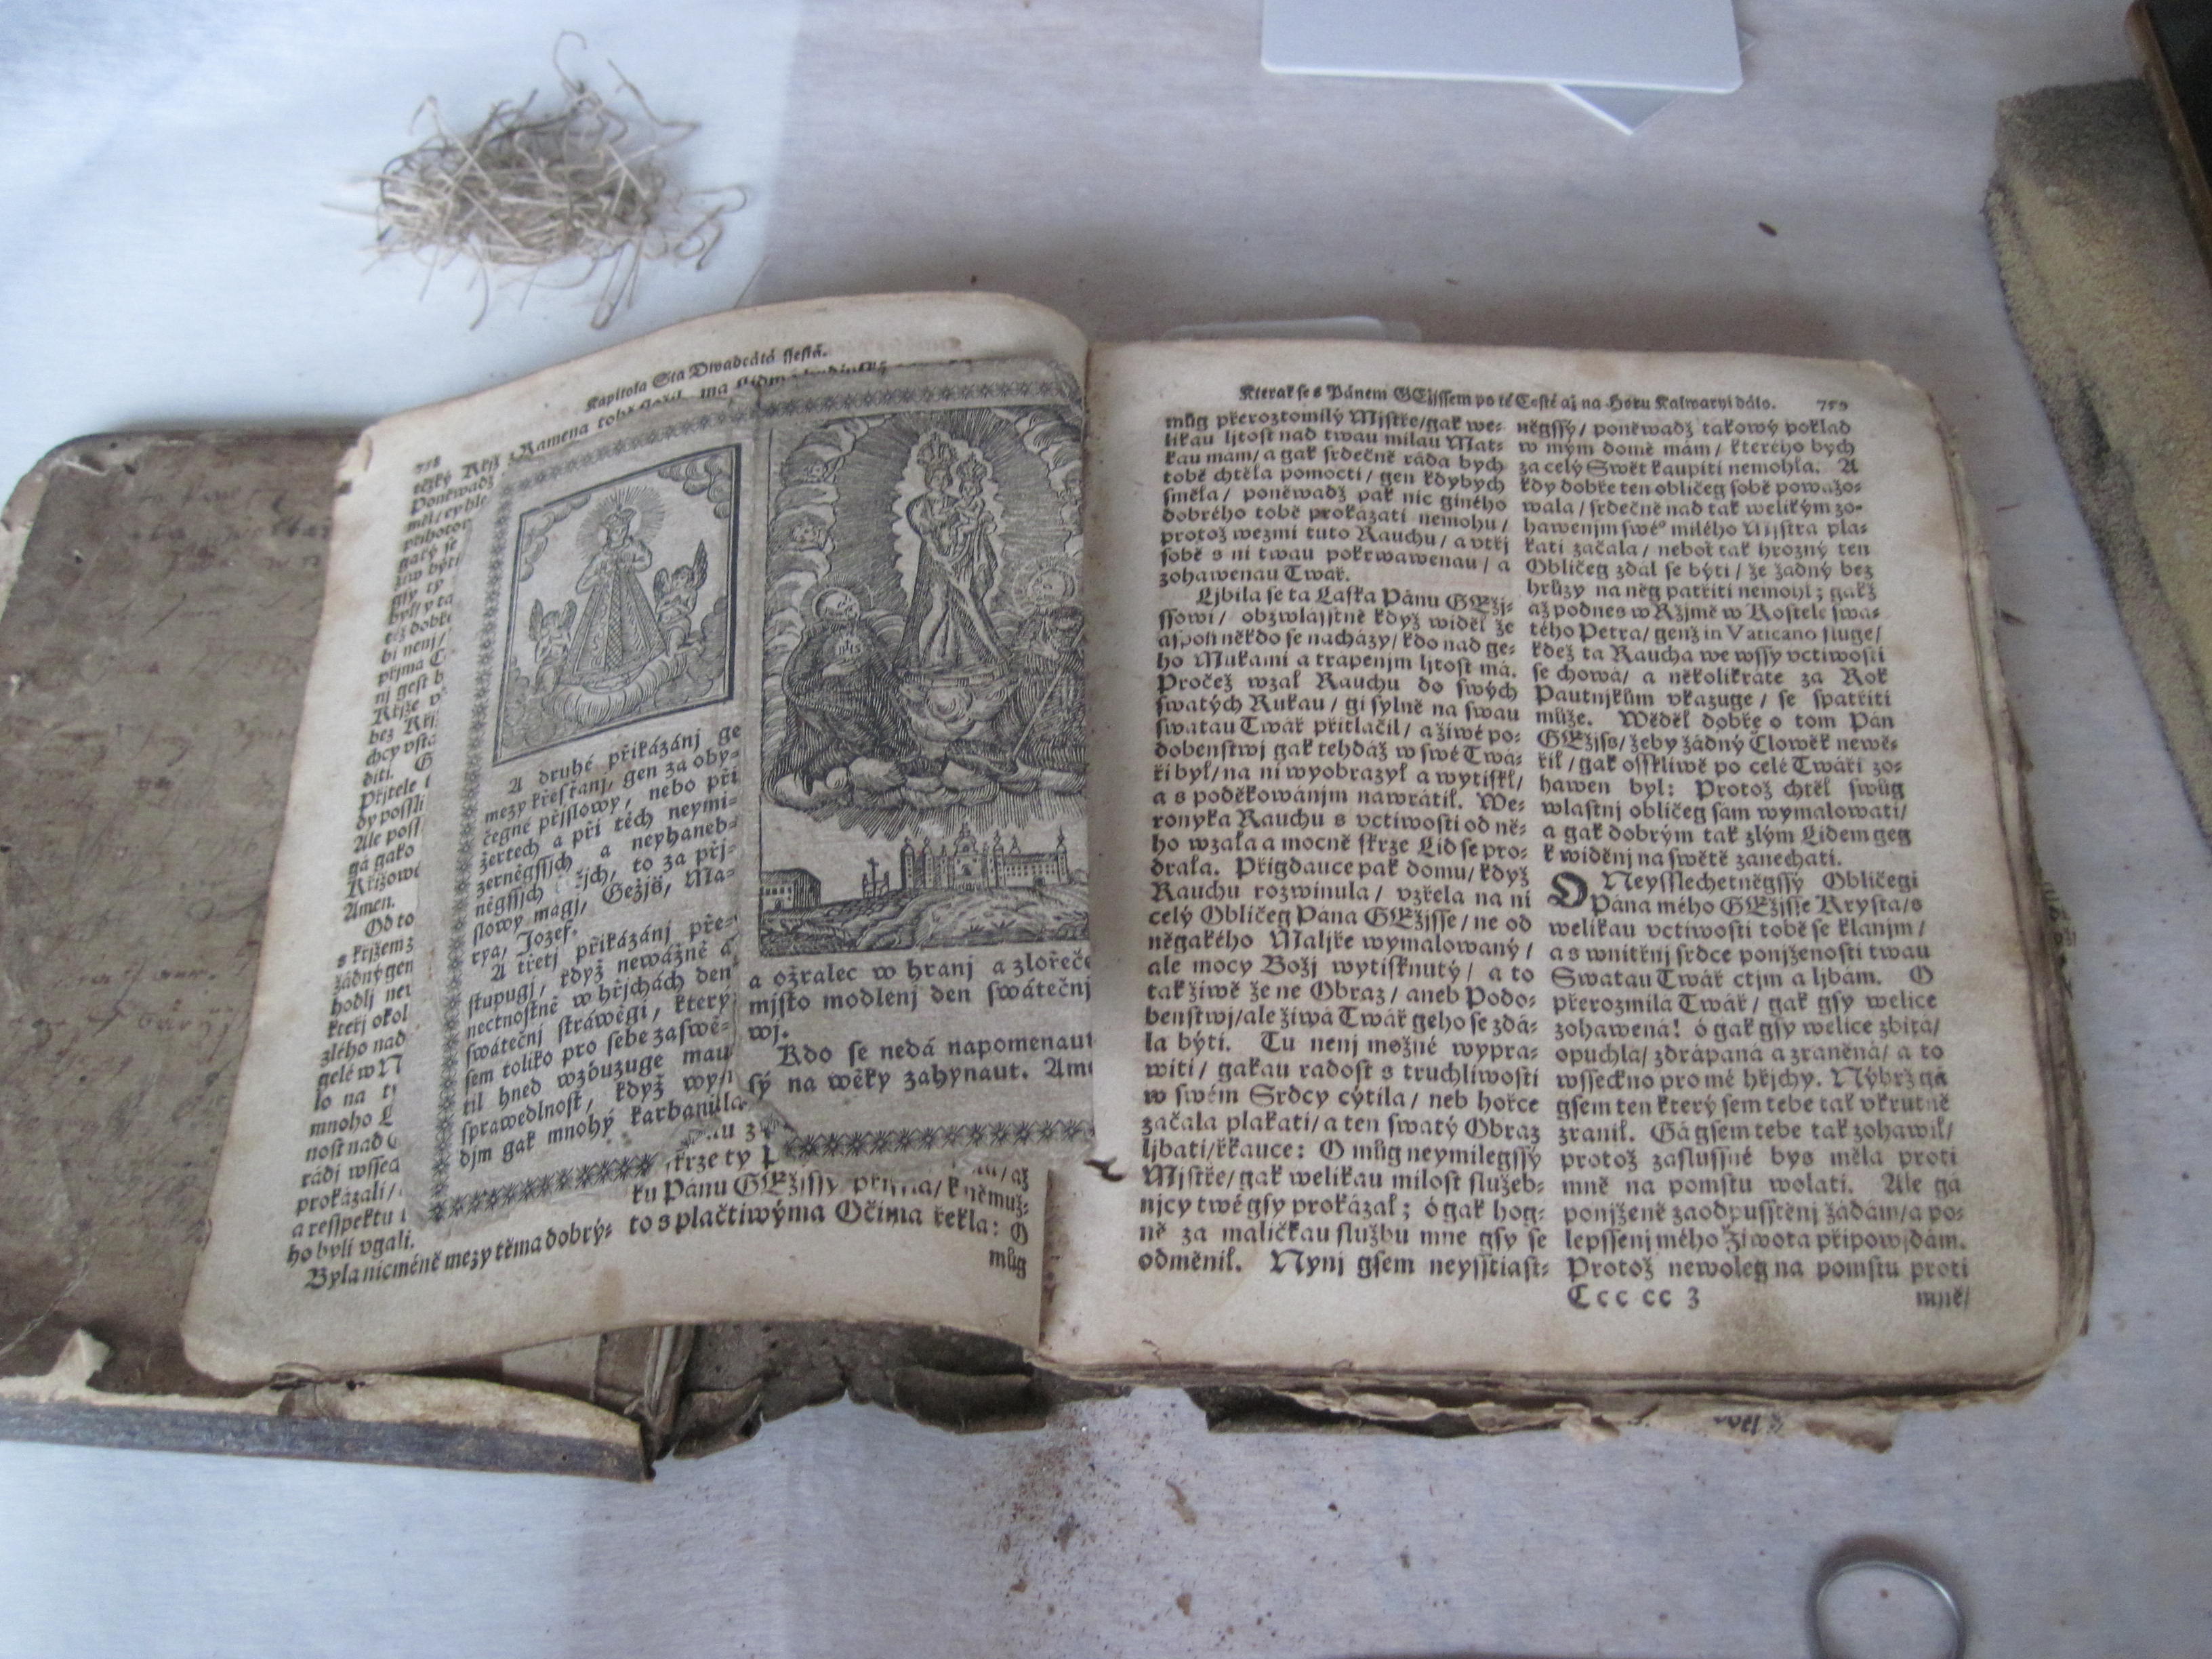 Kapitola Sta Dwadcátá ssestá.
758
těžký Kříž z Ramena
Poněwadž
gatý se
žiw býti
byli/ y ta
též dobře
bi nenj/
přjma
nj gest
Křjže
bez Křj
chcy
djti.
Přjtele
Ale
gá gako
Křižowé
Amen.
Od to
s křjžem
žádný gen
hodlj
kteřj okol
zlého nad
gelé w
lo na
mnoho
nost nad
rádi wssea
prokázali/
a resspektu
ho byli vgali.
Byla nicméně mezy těma dobrý-
A druhé přikázánj ge
mezy křesťanj, gen za oby-
čegné přjslowy, nebo při
žertech a při těch neymi-
zerněgssjch a neyhaneb-
něgssjch
slowy magj, Gežjš, Ma-
rya, Jozef.
A třetj přikázánj pře-
stupugj, když newážně a
nectnostně w hřjchách den
swátečnj stráwěgi, který
sem toliko pro sebe zaswě-
til hned wzbuzuge mau
sprawedlnost, když
djm gak mnohý karbanjk
a ožralec w hranj a zlořeče
mjsto modlenj den swátečnj
wj.
Kdo se nedá napomenaut
sý na wěky zahynaut.
skrze ty
ku Pánu GEžjssy k němuž-
to s plačtiwýma Očima řekla: O
můg
Kterak se s Pánem GEžjssem po té Cestě až na Horu Kalwaryi dálo. 759
můg přeroztomilý Mjstře/ gak we-
likau ljtost nad twau milau Mat-
kau mám/ a gak srdečně ráda bych
tobě chtěla pomocti/ gen kdybych
směla/ poněwadž pak nic giného
dobrého tobě prokázati nemohu/
protož wezmi tuto Rauchu/ a vtři
sobě s ni twau pokrwawenau/ a
zohawenau Twář.
Ljbila se ta Láska Pánu GEžj-
ssowi/ obzwlásstně když widěl že
aspoň někdo se nacházy/ kdo nad ge-
ho Mukami a trápenjm ljtost má.
Pročež wzal Rauchu do swých
swatých Rukau/ gi sylně na swau
swatau Twář přitlačil/ a žiwé po-
dobenstwj gak tehdáž w swé Twá-
ři byl/ na ni wyobrazyl a wytiskl/
a s poděkowánjm nawrátil. We-
ronyka Rauchu s vctiwosti od ně-
ho wzala a mocně skrze Lid se pro-
drala. Přigdauce pak domu/ když
Rauchu rozwinula/ vzřela na ni
celý Obličeg Pána GEžjsse/ ne od
něgakého Maljře wymalowaný/
ale mocy Božj wytisknutý/ a to
tak žiwě že ne Obraz/ aneb Podo-
benstwj/ ale žiwá Twář geho se zdá-
la býti. Tu nenj možné wypra-
witi/ gakau radost s truchliwosti
w swém Srdcy cýtila/ neb hořce
začala plakati/ a ten swatý Obraz
ljbati/ řkauce: O můg neymilegssý
Mjstře/ gak welikau milost služeb-
njcy twé gsy prokázal; ó gak hog-
ně za maličkau službu mne gsy se
odměnil. Nynj gsem neysstiast-
něgssý/ poněwadž takowý poklad
w mým domě mám/ kterého bych
za celý Swět kaupiti nemohla. A
kdy dobře ten obličeg sobě powažo-
wala/ srdečně nad tak welikým zo-
hawenjm swé° milého Mjstra pla-
kati začala/ neboť tak hrozný ten
Obličeg zdál se býti/ že žádný bez
hrůzy na něg patřiti nemohl; gakž
až podnes w Ržjmě w Kostele swa-
tého Petra/ genž in Vaticano sluge/
kdež ta Raucha we wssý vctiwosti
se chowá/ a několikráte za Rok
Pautnjkům vkazuge/ se spatřiti
může. Wěděl dobře o tom Pán
GEžjss/ žeby žádný Člowěk newě-
řil/ gak osskliwě po celé Twáři zo-
hawen byl: Protož chtěl swůg
wlastnj obličeg sám wymalowati/
a gak dobrým tak zlým Lidem geg
k widěnj na swětě zanechati.
O Neysslechetněgssý Obličegi
Pána mého GEžjsse Krysta/ s
welikau vctiwosti tobě se klanjm/
a s wnitřnj srdce ponjženosti twau
Swatau Twář ctjm a ljbám. O
přerozmilá Twář/ gak gsy welice
zohawená! ó gak gsy welice zbitá/
opuchlá/ zdrápaná a zraněná/ a to
wsseckno pro mé hřjchy. Nýbrž gá
gsem ten který sem tebe tak vkrutně
zranil. Gá gsem tebe tak zohawil/
protož zaslussně bys měla proti
mně na pomstu wolati. Ale gá
ponjženě za odpusstěnj žádám/ a po-
lepssenj mého Žiwota připowjdám.
Protož newoleg na pomstu proti
Ccc cc 3 mně/